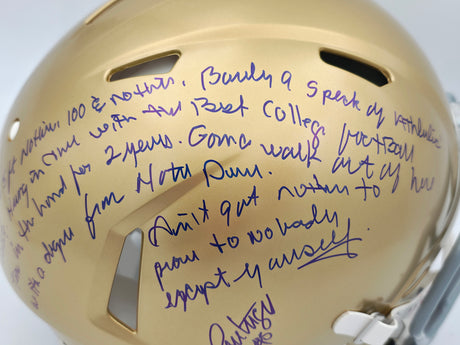 ft Nothin. 100 & nothin. Barely a speck of athletic
hung in there with the Best College football
in the land for 2 years. Gonna walk out of here
with a degree from Notre Dame. Ain't got nothin to
prove to nobody
except yourself.